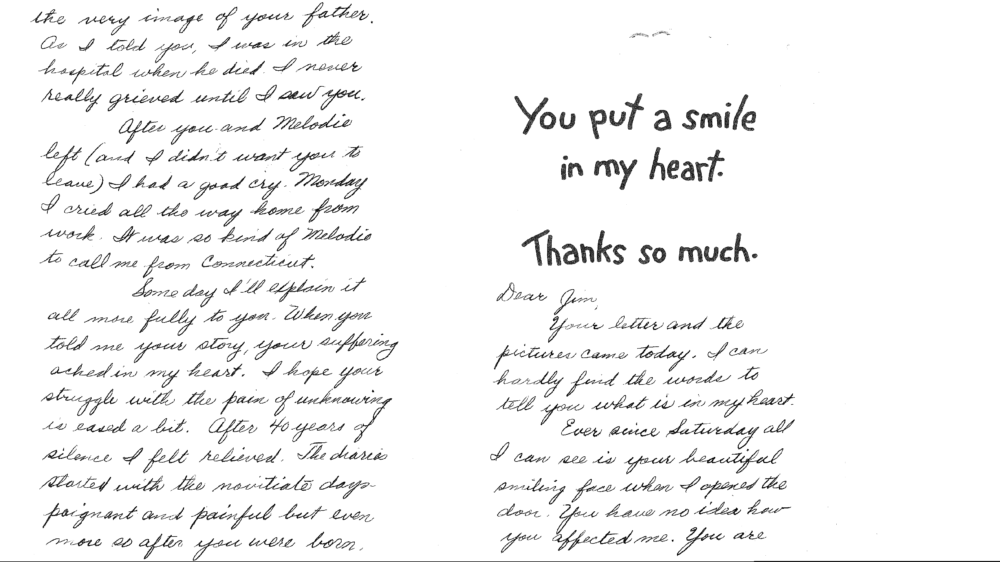 You put a smile
in my heart.
Thanks so much.
Dear Jim,
Your letter and the
pictures came today. I can
hardly find the words to
tell you what is in my heart.
Ever since Saturday all
I can see is your beautiful
smiling face when I opened the
door. You have no idea how
you affected me. You are
the very image of your father.
As I told you, I was in the
hospital when he died. I never
really grieved until I saw you.
After you and Melodie
left (and I didn't want you to
leave) I had a good cry. Monday
I cried all the way home from
work. It was so kind of Melodie
to call me from Connecticut.
Some day I'll explain it
all more fully to you. When you
told me your story, your suffering
ached in my heart. I hope your
struggle with the pain of unknowing
is eased a bit. After 40 years of
silence I felt relieved. The diaries
started with the novitiate days-
poignant and painful but even
more so after you were born.